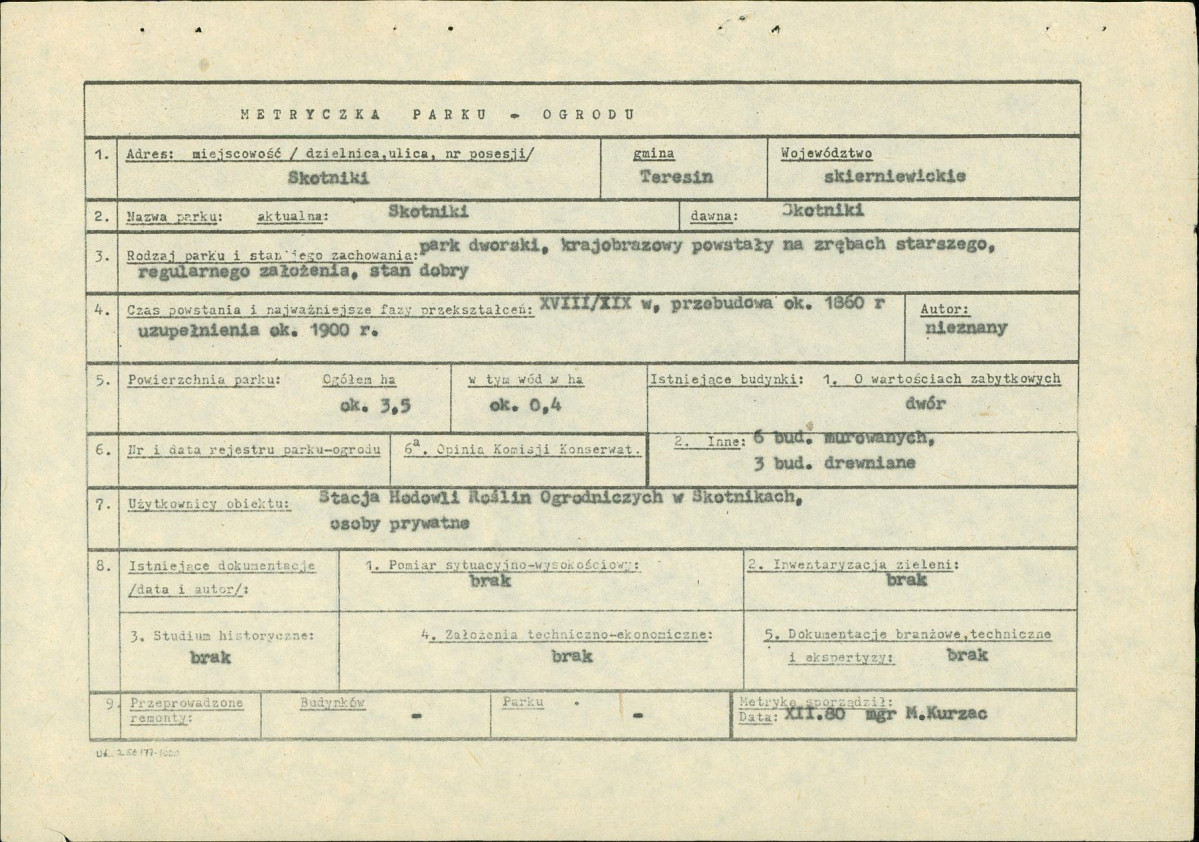 METRYCZKA PARKU - OGRODU
1. Adres: miejscowość / dzielnica,ulica, nr posesji/ gmina Województwo
Skotniki Teresin skierniewickie
2. Nazwa parku: aktualna: Skotniki dawna: Skotniki
3. Rodzaj parku i stan jego zachowania: park dworski, krajobrazowy powstały na zrębach starszego,
regularnego założenia, stan dobry
4. Czas powstania i najważniejsze fazy przekształceń: XVIII/XIX w, przebudowa ok. 1860 r Autor:
uzupełnienia ok. 1900 r. nieznany
5. Powierzchnia parku: Ogółem ha w tym wód w ha Istniejące budynki: 1. O wartościach zabytkowych
ok. 3,5 ok. 0,4 dwór
6. Nr i data rejestru parku-ogrodu 6a. Opinia Komisji Konserwat. 2. Inne: 6 bud. murowanych,
3 bud. drewniane
7. Użytkownicy obiektu: Stacja Hodowli Roślin Ogrodniczych w Skotnikach,
osoby prywatne
8. Istniejące dokumentacje 1. Pomiar sytuacyjno-wysokościowy: 2. Inwentaryzacja zieleni:
/data i autor/: brak brak
3. Studium historyczne: 4. Założenia techniczno-ekonomiczne: 5. Dokumentacje branżowe,techniczne
brak brak i ekspertyzy: brak
9. Przeprowadzone Budynków Parku Metrykę sporządził:
remonty: - - Data: XII.80 mgr M.Kurzac